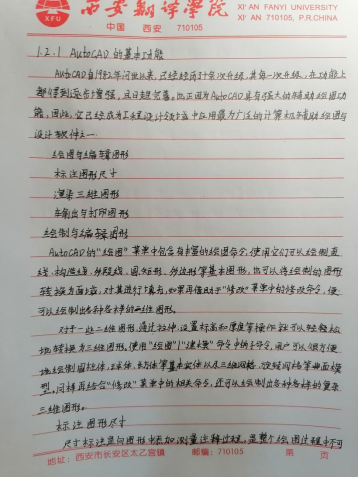 西安翻译学院
XI'AN FANYI UNIVERSITY
XFU
中国 西安 710105
XI'AN 710105, P.R.CHINA
1.2.1 AutoCAD的基本功能
AutoCAD自1982年问世以来,已经经历了十余次升级,其每一次升级,在功能上
都得到了逐步增强,且日趋完善。也正因为AutoCAD具有强大的辅助绘图功
能,因此,它已经成为工程设计领域中应用最为广泛的计算机辅助绘图与
设计软件之一。
绘图与编辑图形
标注图形尺寸
渲染三维图形
输出与打印图形
绘制与编辑图形
AutoCAD的"绘图"菜单中包含有丰富的绘图命令,使用它们可以绘制直
线、构造线、多段线、圆、矩形、多边形等基本图形,也可以将绘制的图形
转换为面域,对其进行填充,如果再借助于"修改"菜单中的修改命令,便
可以绘制出各种各样的二维图形。
对于一些二维图形,通过拉伸、设置标高和厚度等操作就可以轻松
地转换为三维图形。使用"绘图"|"建模"命令中的子命令,用户可以很方便
地绘制圆柱体、球体、长方体等基本实体以及三维网格、旋转网格等曲面模
型。同样再结合"修改"菜单中的相关命令,还可以绘制出各种各样的复杂
三维图形。
标注图形尺寸
尺寸标注是向图形中添加测量注释的过程,是整个绘图过程中不可
地址:西安市长安区太乙宫镇 邮编:710105 第 页